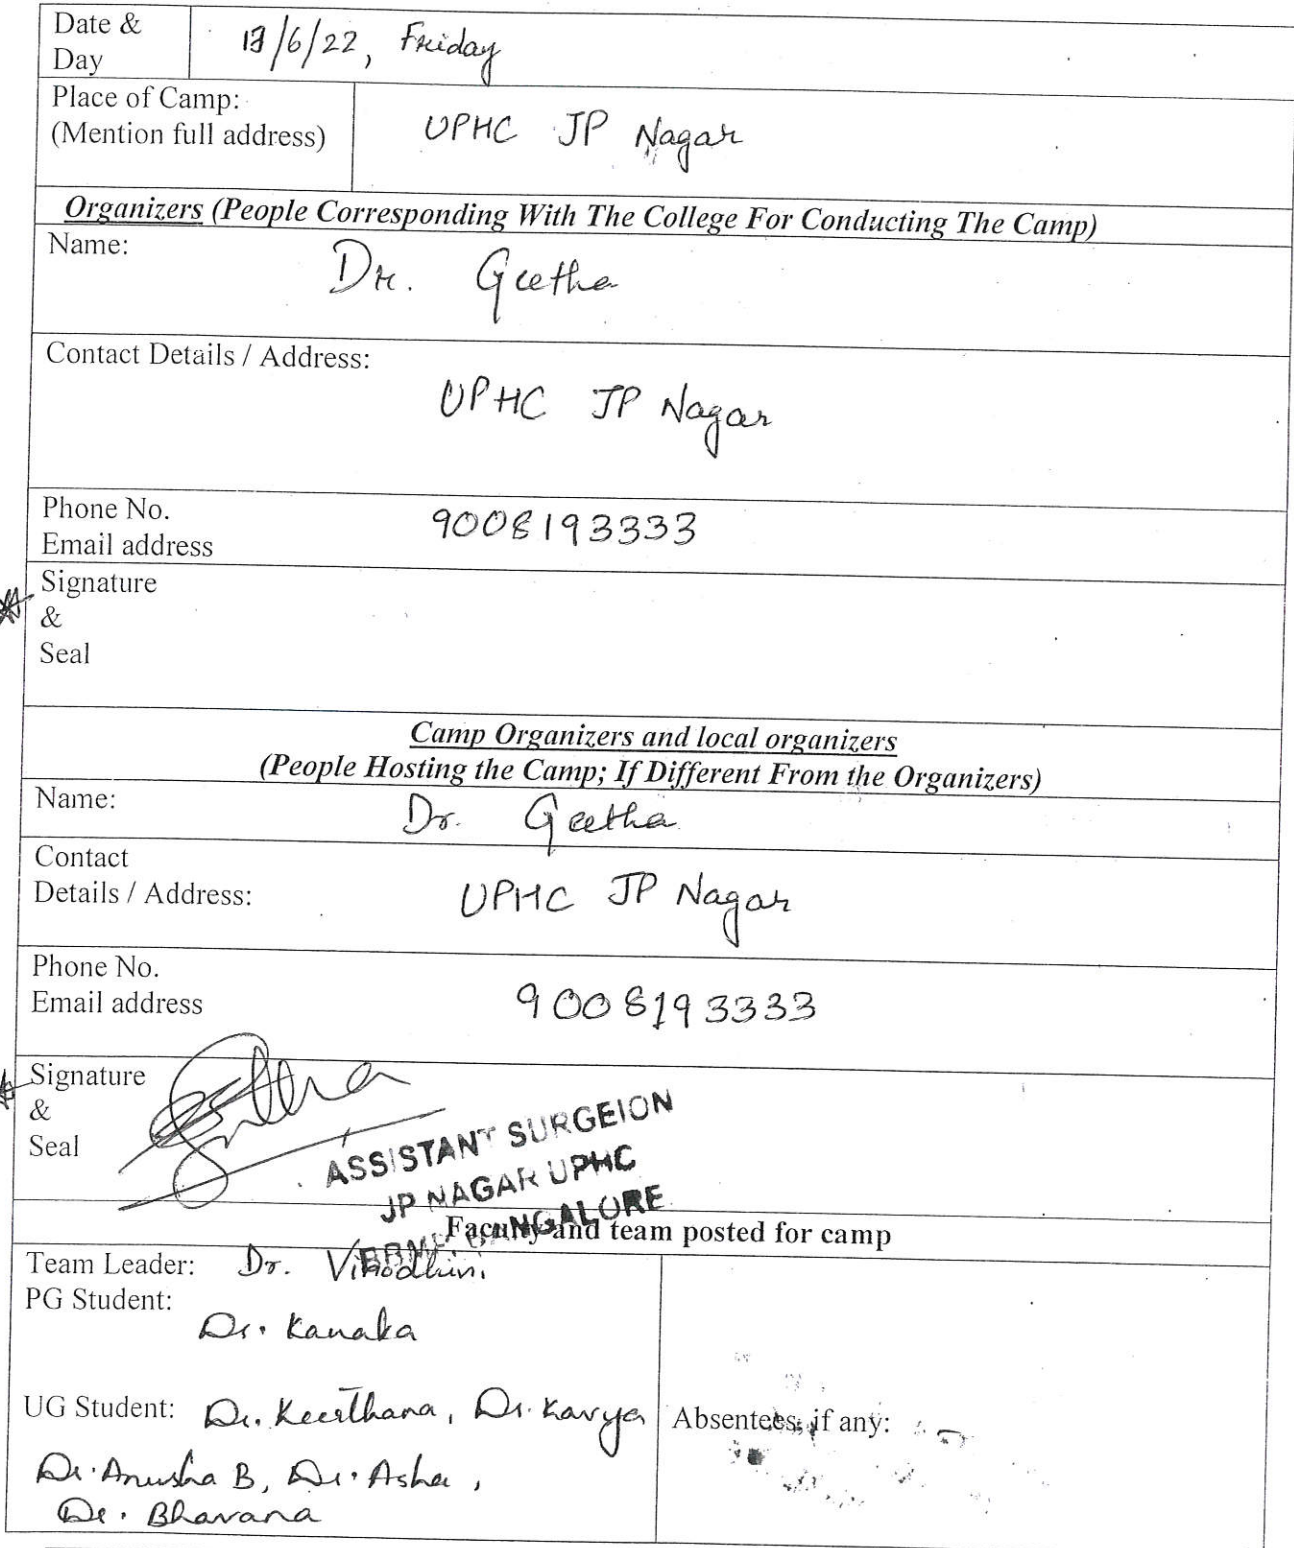 Date &
Day
/6/22, Friday
Place of Camp:
(Mention full address)
UPHC JP Nagar
Organizers (People Corresponding With The College For Conducting The Camp)
Name:
Dr. Geetha
Contact Details / Address:
UPHC JP Nagar
Phone No.
Email address
9008193333
Signature
&
Seal
Camp Organizers and local organizers
(People Hosting the Camp; If Different From the Organizers)
Name:
Dr. Geetha
Contact
Details / Address:
UPHC JP Nagar
Phone No.
Email address
9008193333
Signature
&
Seal
ASSISTANT SURGEION
JP NAGAR UPHC
BBMP, BANGALORE
Faculty and team posted for camp
Team Leader: Dr. Vinodhini
PG Student:
Dr. Kanaka
UG Student: Dr. Keerthana, Dr. Kavya
Dr. Anusha B, Dr. Asha,
Dr. Bhavana
Absentees, if any: